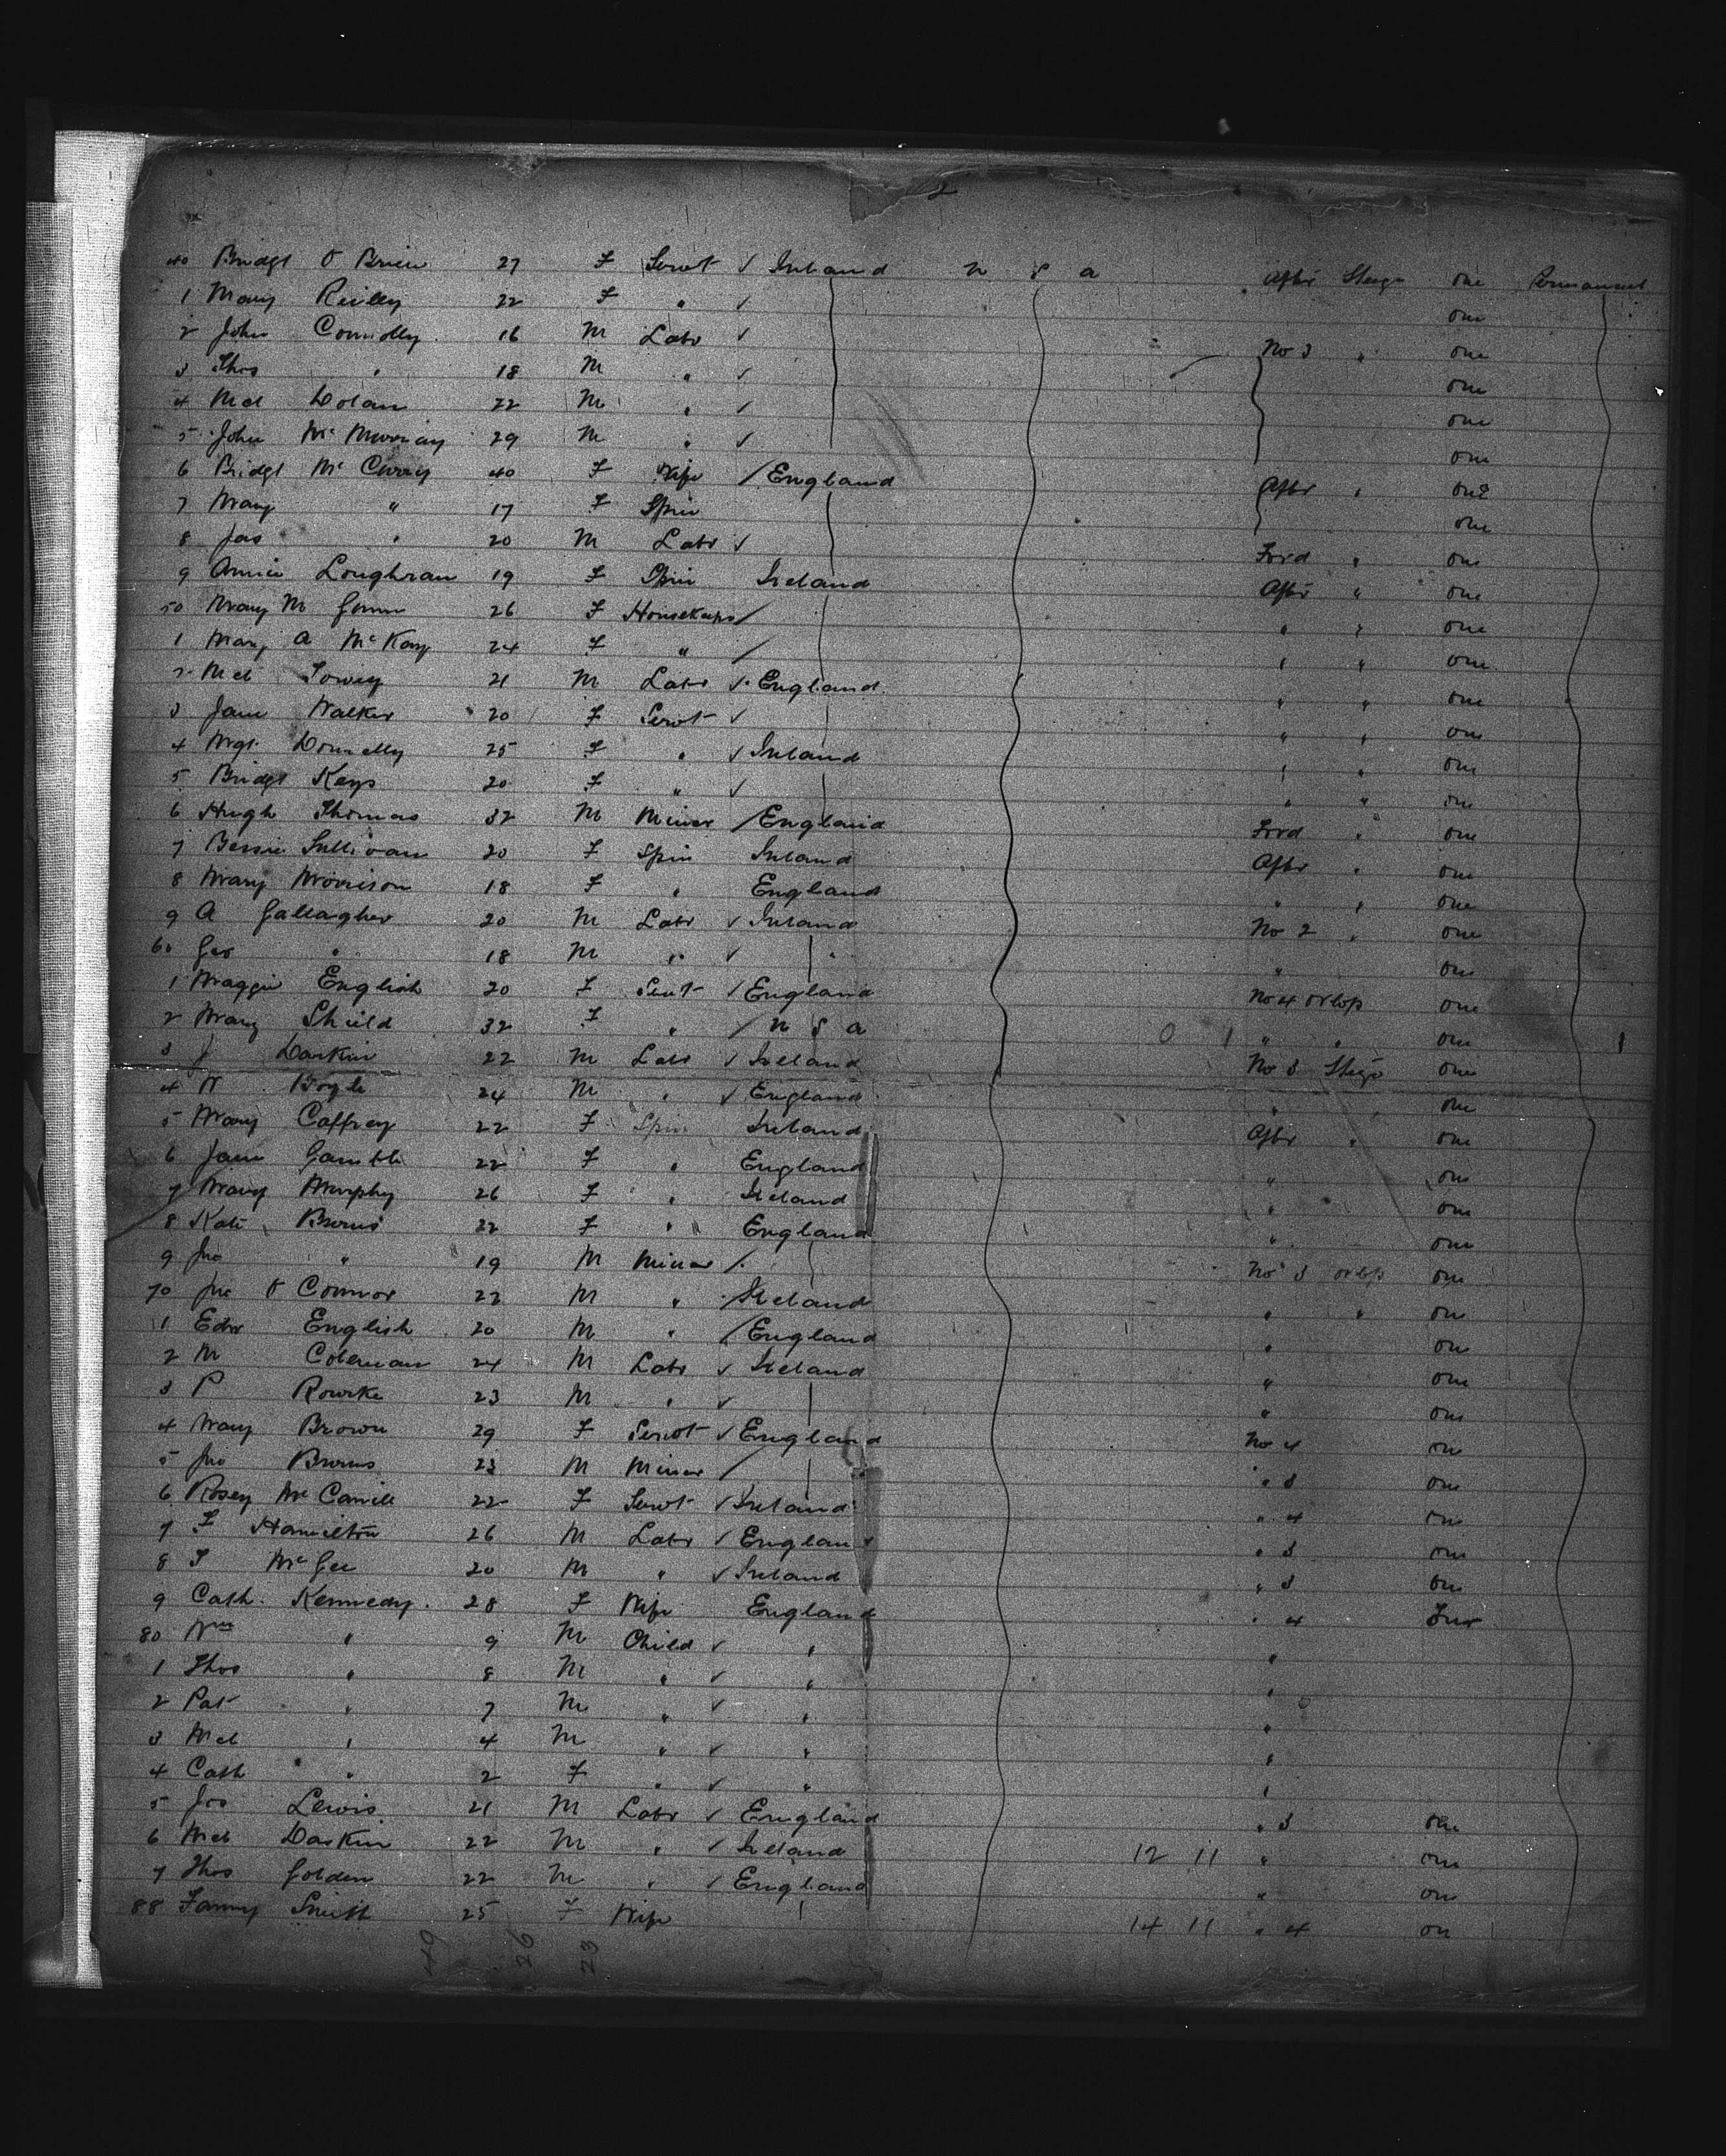 2
40 Bridgt O Brien 27 F Servt ✓ Ireland U S A Aftr Steege one Permanent
1 Mary Reilly 22 F " ✓ one
2 John Connolly 16 M Labr ✓ No 3 " one
3 Thos " 18 M " ✓ one
4 Mcl Dolan 22 M " ✓ one
5 John Mc Murray 29 M " ✓ one
6 Bridgt Mc Curry 40 F Wife / England Aftr " one
7 Mary " 17 F Spin one
8 Jas " 20 M Labr ✓ Ford " one
9 Annie Loughran 19 F Spin Ireland Aftr " one
50 Mary M 26 F Housekeepr / " " one
1 Mary A McKay 24 F " / " " one
2 Mcl Towey 21 M Labr ✓ England " " one
3 Jane Walker 20 F Servt ✓ " " one
4 Mgt Donnelly 25 F " ✓ Ireland " " one
5 Bridgt Keys 20 F " ✓ " " one
6 Hugh Thomas 32 M Miner / England Ford " one
7 Bessie Sullivan 20 F Spin Ireland Aftr " one
8 Mary Morrison 18 F " England " " one
9 A Gallagher 20 M Labr ✓ Ireland No 2 " one
60 Geo " 18 M " ✓ " one
1 Maggie English 20 F Servt / England No 4 Orlop one
2 Mary Shield 32 F " / U S A 0 1 " " one 1
3 J Daskin 22 M Labr ✓ Ireland No 3 Steege one
4 W Boyle 24 M " ✓ England " " one
5 Mary Caffrey 22 F Spin Ireland Aftr " one
6 Jane Gamble 22 F " England " one
7 Mary Murphy 26 F " Ireland " " one
8 Kate Burns 22 F " England " one
9 Jno " 19 M Miner / No 3 Orlop one
70 Jno O Connor 22 M " / Ireland " " one
1 Edw English 20 M " / England " one
2 M Coleman 24 M Labr ✓ Ireland " one
3 P Rourke 23 M " ✓ " one
4 Mary Brown 29 F Servt ✓ England No 4 one
5 Jno Burns 23 M Miner / " 3 one
6 Rosey Mc Canill 22 F Servt ✓ Ireland " 4 one
7 F Hamilton 26 M Labr ✓ England " 3 one
8 T McGee 20 M " ✓ Ireland " 3 one
9 Cath Kennedy 28 F Wife England " 4 Four
80 Wm " 9 M Child ✓ " "
1 Thos " 8 M " ✓ " "
2 Pat " 7 M " ✓ " "
3 Mcl " 4 M " ✓ " "
4 Cath " 2 F " ✓ " "
5 Jos Lewis 21 M Labr ✓ England " 3 one
6 Mcl Daskin 22 M " ✓ Ireland 12 11 " one
7 Thos Golden 22 M " / England " one
88 Fanny Smith 25 F Wife 14 11 " 4 on
49 26 23